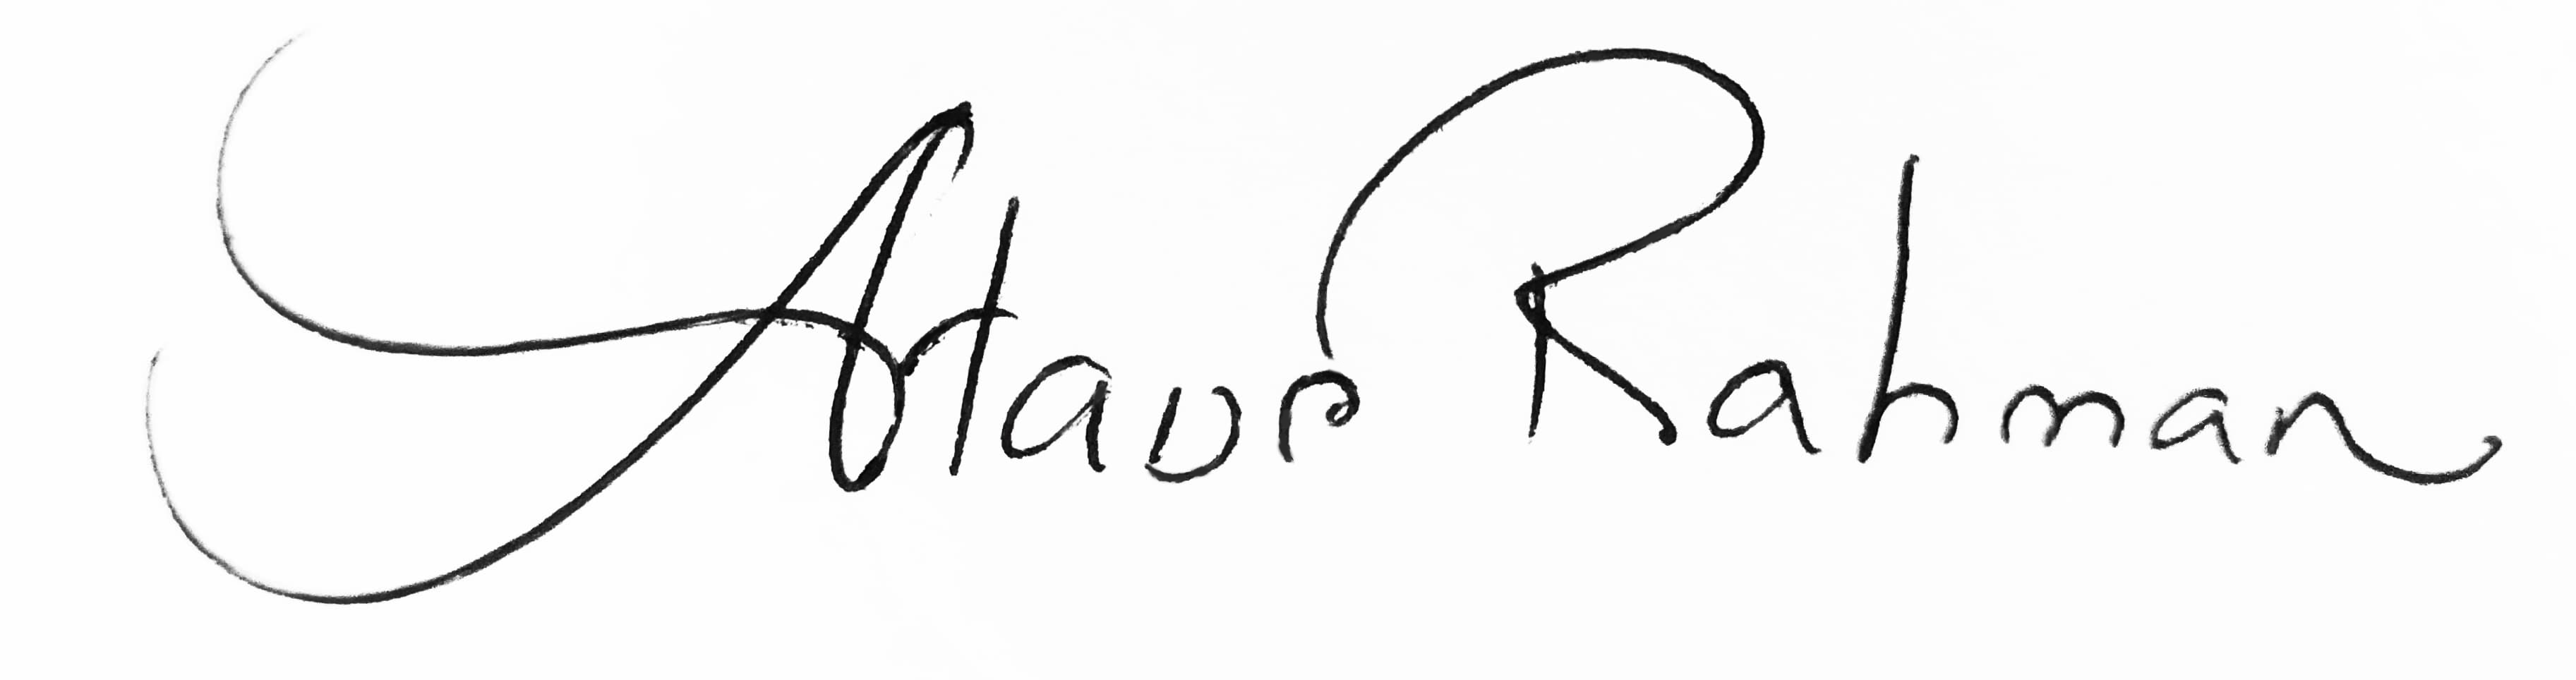 Ataur Rahman